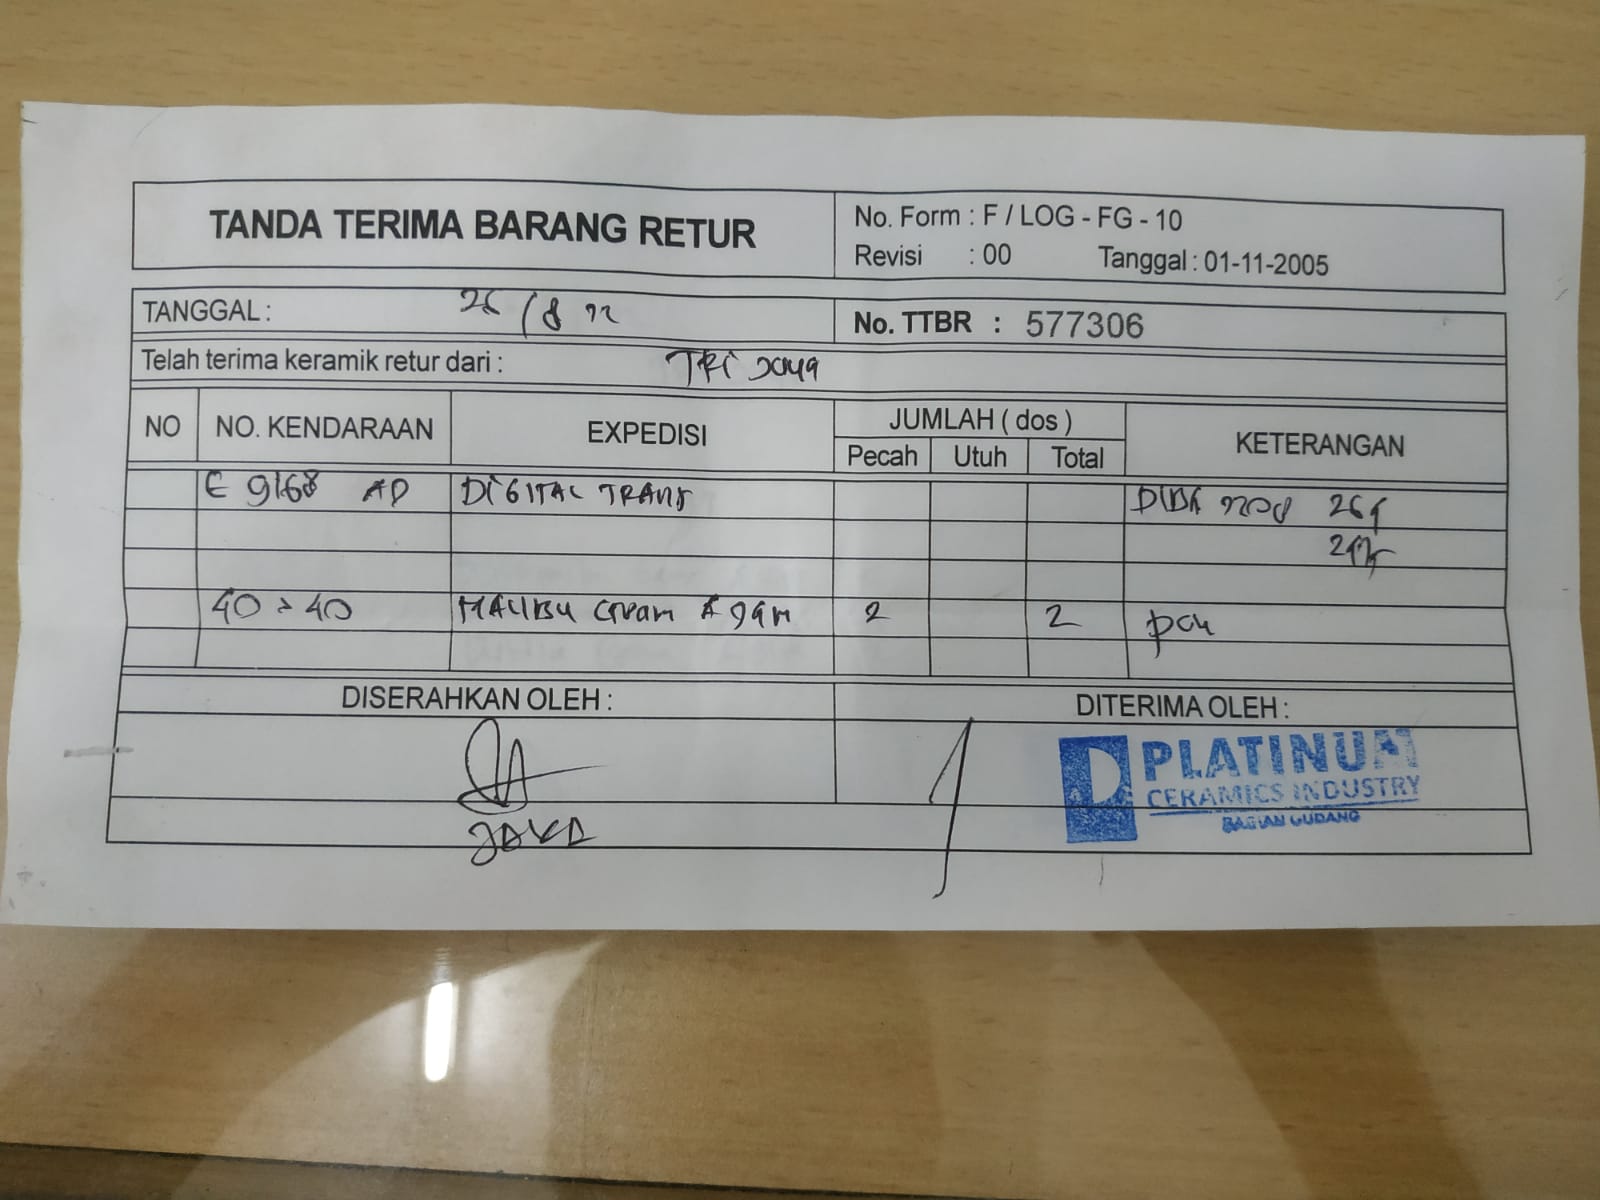 TANDA TERIMA BARANG RETUR
No. Form : F / LOG - FG - 10
Revisi : 00 Tanggal : 01-11-2005
TANGGAL : 26/8 22
No. TTBR : 577306
Telah terima keramik retur dari : TRI JAYA
NO NO. KENDARAAN EXPEDISI JUMLAH ( dos ) KETERANGAN
Pecah Utuh Total
E 9168 AD DIGITAL TRANS
40 x 40 MALIBU Cream A 2 2
DISERAHKAN OLEH : DITERIMA OLEH :
PLATINUM
CERAMICS INDUSTRY
BAGIAN GUDANG
JAKA